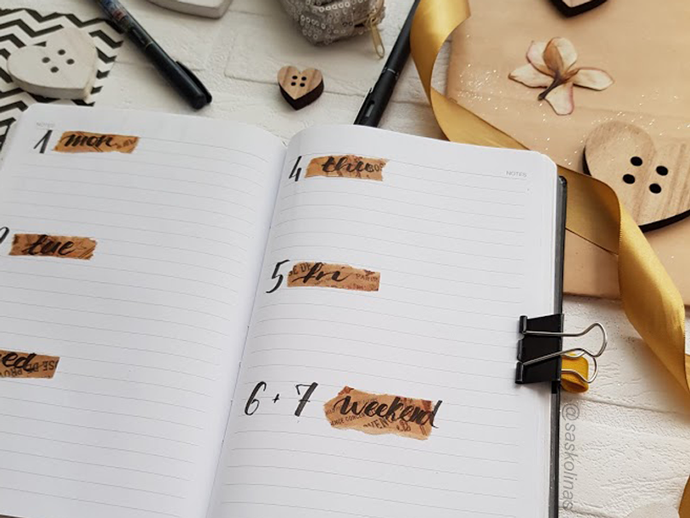 NOTES
1 mon
2 tue
wed
NOTES
4 thu
5 fri
6 + 7 weekend
@saskolinas